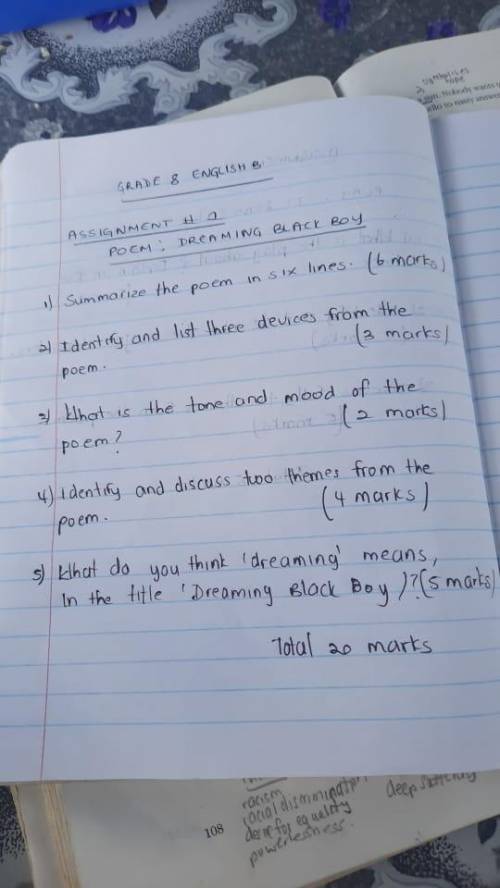 Nobody wants
to many answer
GRADE 8 ENGLISH B
ASSIGNMENT # 2
POEM: DREAMING BLACK BOY
1) Summarize the poem in six lines. (6 marks)
2) Identify and list three devices from the
poem. (3 marks)
3) What is the tone and mood of the
poem? (2 marks)
4) Identify and discuss two themes from the
poem. (4 marks)
5) What do you think 'dreaming' means,
In the title 'Dreaming Black Boy)? (5 marks)
Total 20 marks
108
racism
racial discrimination
desire for equality
powerlessness.
deep